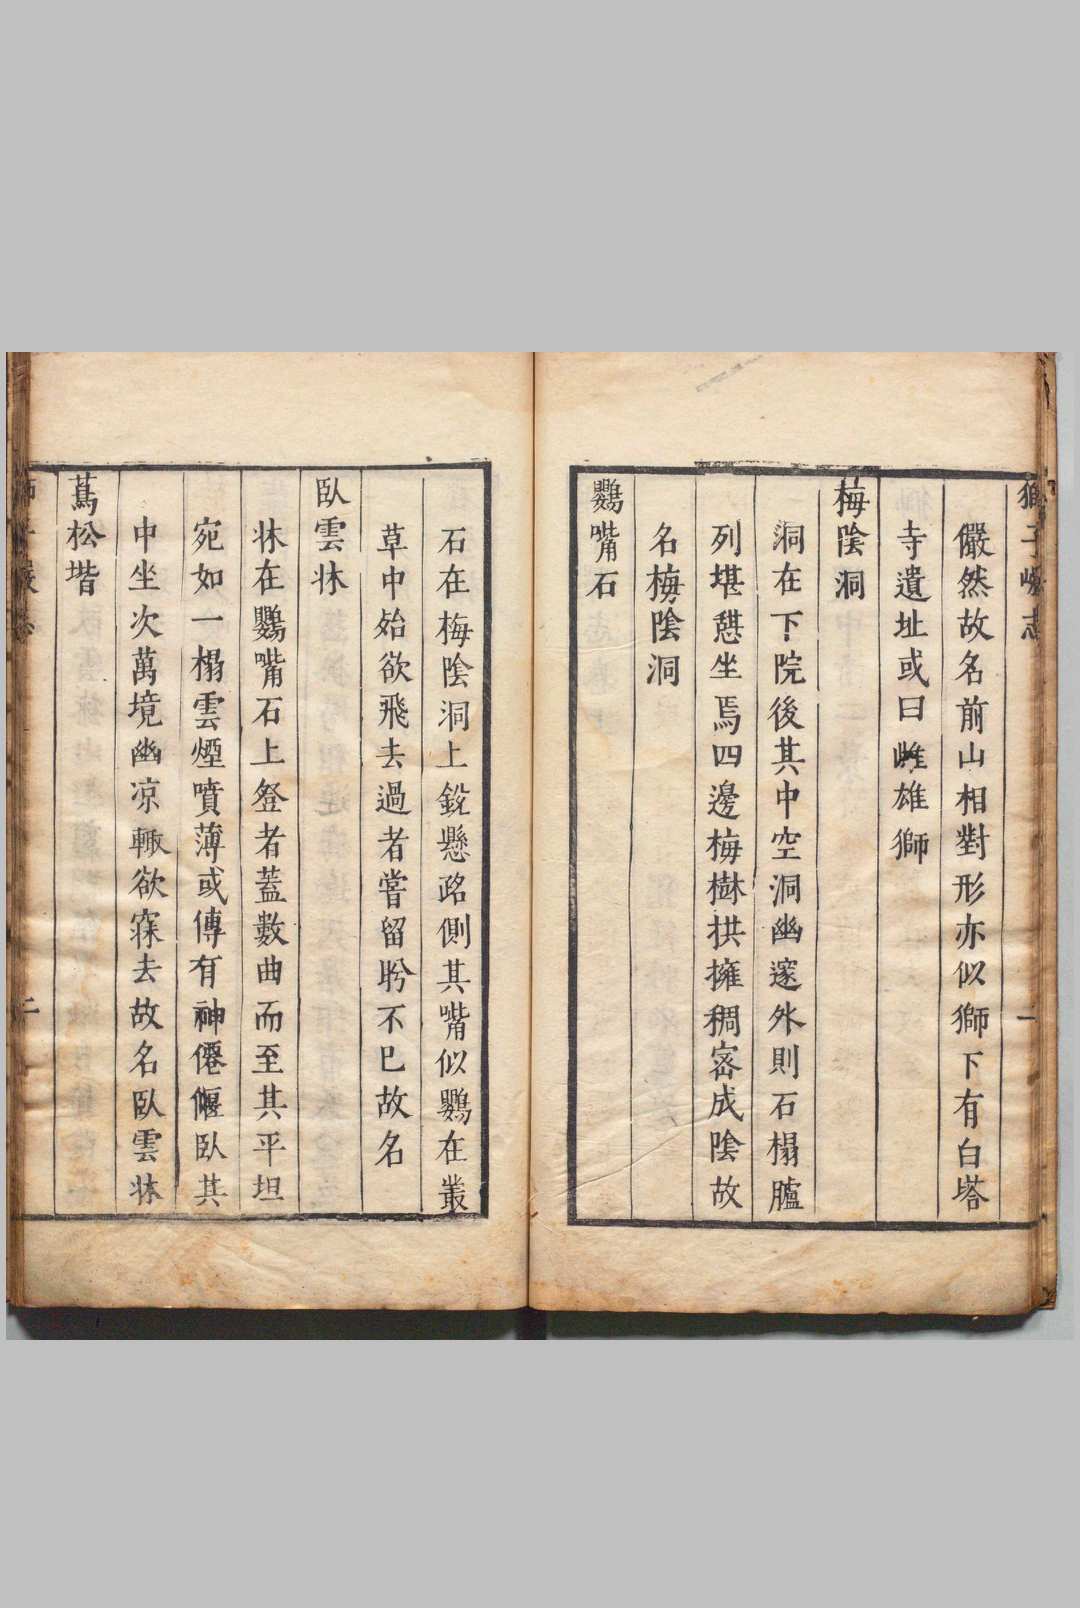 獅子巖志 一
儼然故名前山相對形亦似獅下有白塔
寺遺址或曰雌雄獅
梅陰洞
洞在下院後其中空洞幽邃外則石榻臚
列堪憇坐焉四邊梅樹拱擁稠宻成陰故
名梅陰洞
鸚嘴石
石在梅陰洞上鋭懸路側其嘴似鸚在叢
草中始欲飛去過者嘗留盻不已故名
臥雲牀
牀在鸚嘴石上登者蓋數曲而至其平坦
宛如一榻雲煙噴薄或傳有神僊偃臥其
中坐次萬境幽凉輙欲寐去故名臥雲牀
蔦松堦
獅子巖志 二